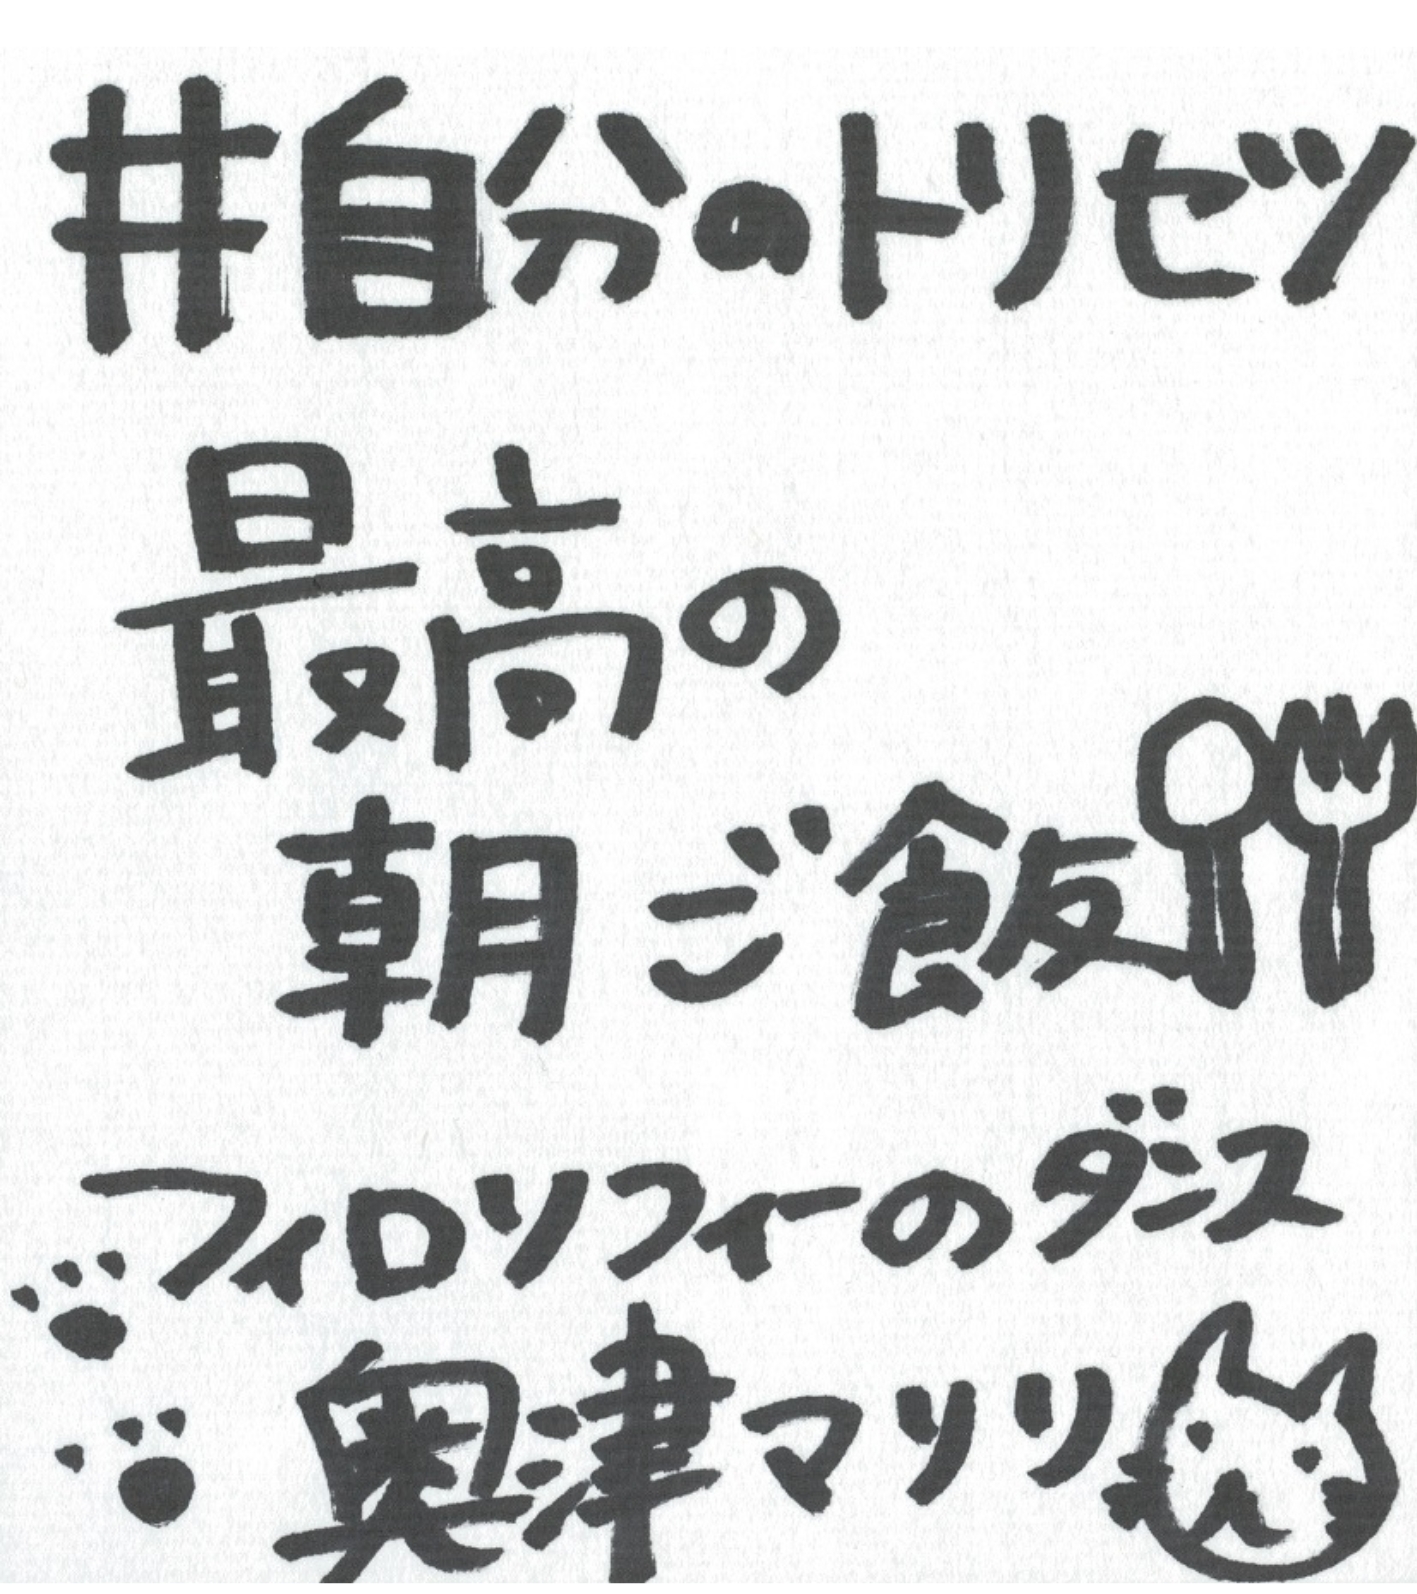 #自分のトリセツ
最高の
朝ご飯
フィロソフィーのダンス
奥津マリリ